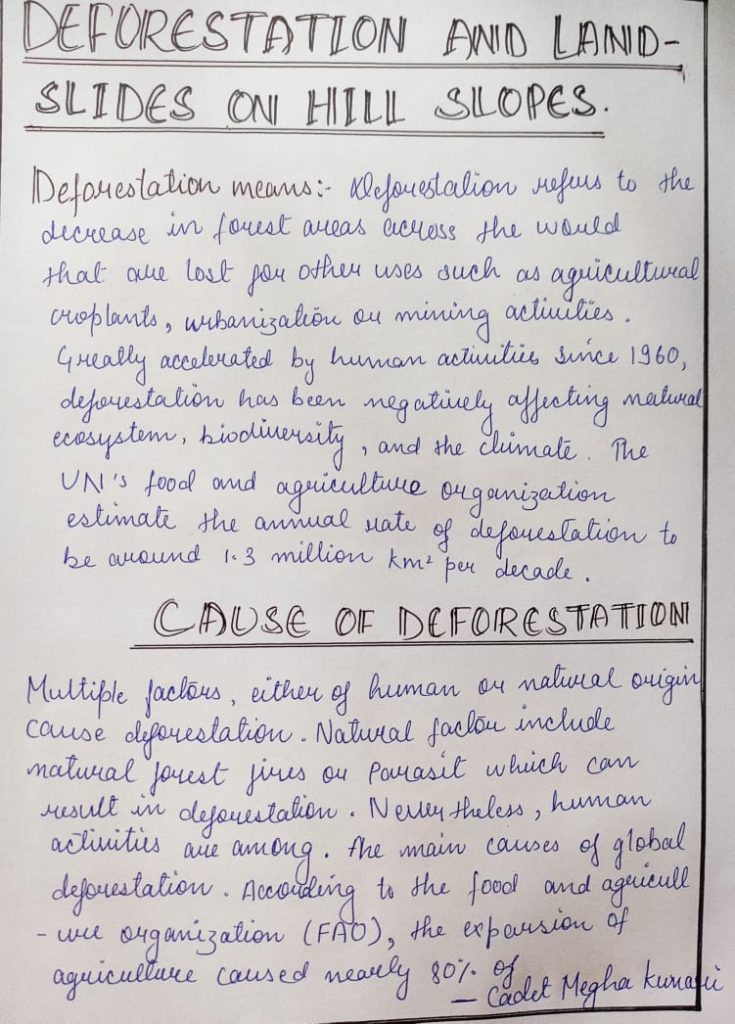 DEFORESTATION AND LAND-
SLIDES ON HILL SLOPES.
Deforestation means:- Deforestation refers to the
decrease in forest areas across the would
that are lost for other uses such as agricultural
croplants, urbanization or mining activities.
Greally accelerated by human activities since 1960,
deforestation has been negatively affecting natural
ecosystem, biodiversity, and the climate. The
UN's food and agriculture organization
estimate the annual rate of deforestation to
be around 1.3 million km² per decade.
CAUSE OF DEFORESTATION
Multiple factors, either of human or natural origin
cause deforestation. Natural factor include
natural forest fires or Parasit which can
result in deforestation. Neverytheless, human
activities are among. the main causes of global
deforestation. According to the food and agricult
-ure organization (FAO), the expansion of
agriculture caused nearly 80% of
— Cadet Megha Kumari